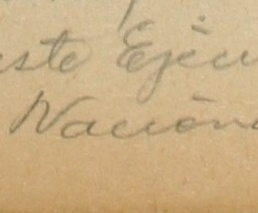 este Ejérc
Nación